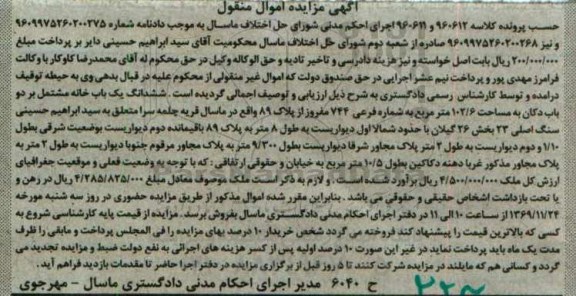 آگهی مزایده اموال منقول
حسب پرونده کلاسه ۹۶۰۶۱۲ و ۹۶۰۶۱۱ اجرای احکم مدنی شورای حل اختلاف ماسـال به موجب دادنامه شماره ۹۶۰۹۹۷۵۲۶۰۲۰۰۲۷۵
و نیز ۹۶۰۹۹۷۵۲۶۰۲۰۰۲۶۸ صادره از شعبه دوم شورای حل اختلاف ماسال محکومیت آقای سید ابراهیم حسینی دایر بر پرداخت مبلغ
۲۰۰/۰۰۰/۰۰۰ ریال بابت اصل خواسته و نیز هزینه دادرسی و تاخیر تادیه و حق الوکاله وکیل در حق محکوم له آقای محمدرضا کاوکار با وکالت
فرامرز مهدی پور و پرداخت نیم عشر اجرایی در حق صندوق دولت که اموال غیر منقولی از محکوم علیه در قبال بدهی وی به حیطه توقیف
درآمده و توسط کارشناس رسمی دادگستری به شرح ذیل ارزیابی و توصیف اجمالی گردیده است. ششدانگ یک باب خانه مشتمل بر دو
باب دکان به مساحت ۱۰۲/۶ متر مربع به شماره فرعی ۷۴۴ مفروز از پلاک ۸۹ واقع در ماسال قریه چلمه سرا متعلق به سید ابراهیم حسینی
سنگ اصلی ۲۳ بخش ۲۶ گیلان با حدود شمالا اول دیواریست به طول ۸ متر به پلاک ۸۹ باقیمانده دوم دیواریست بوضعیت شرقی بطول
۱/۱۰ و دوم دیواریست به طول ۲ متر پلاک مجاور شرقا دیواریست بطول ۹/۳۰ متر به پلاک مجاور مرقوم جنوبا دیواریست به طول ۲ متر به
پلاک مجاور مذکور غربا دهنه دکاکین بطول ۱۰/۵ متر مربع به خیابان و حقوقی ارتفاقی : که با توجه به وضعیت فعلی و موقعیت جغرافیای
ارزش کل ملک ۴/۵۰۰/۰۰۰/۰۰۰ ریال برآورد شده است . و لازم به ذکر است ملک موصوف معادل مبلغ ۴/۲۸۵/۸۲۵/۰۰۰ ریال در رهن و
یا تحت بازداشت اشخاص حقیقی و حقوقی می باشد . بنابراین مقرر شده اموال مذکور از طریق مزایده حضوری در روز سه شنبه مورخه
۱۳۶۹/۱۱/۲۴ از ساعت ۱۰ الی ۱۱ در دفتر اجرای احکام مدنی دادگستری ماسال بفروش برسد . مزایده از قیمت پایه کارشناسی شروع به
کسی که بالاترین قیمت را پیشنهاد کند فروخته می گردد شخص خریدار ۱۰ درصد بهای مزایده را فی المجلس پرداخت و مابقی را ظرف
مدت یک ماه باید پرداخت نماید در غیر این صورت ۱۰ درصد اولیه پس از کسر هزینه های اجرائی به نفع دولت ضبط و مزایده تجدید می
گردد و کسانی هم که مایلند در مزایده شرکت کنند تا ۵ روز قبل از برگزاری مزایده در دفتر اجرا حاضر تا مقدمات بازدید فراهم آید.
ح ۶۰۴۰ مدیر اجرای احکام مدنی دادگستری ماسال - مهرجوی